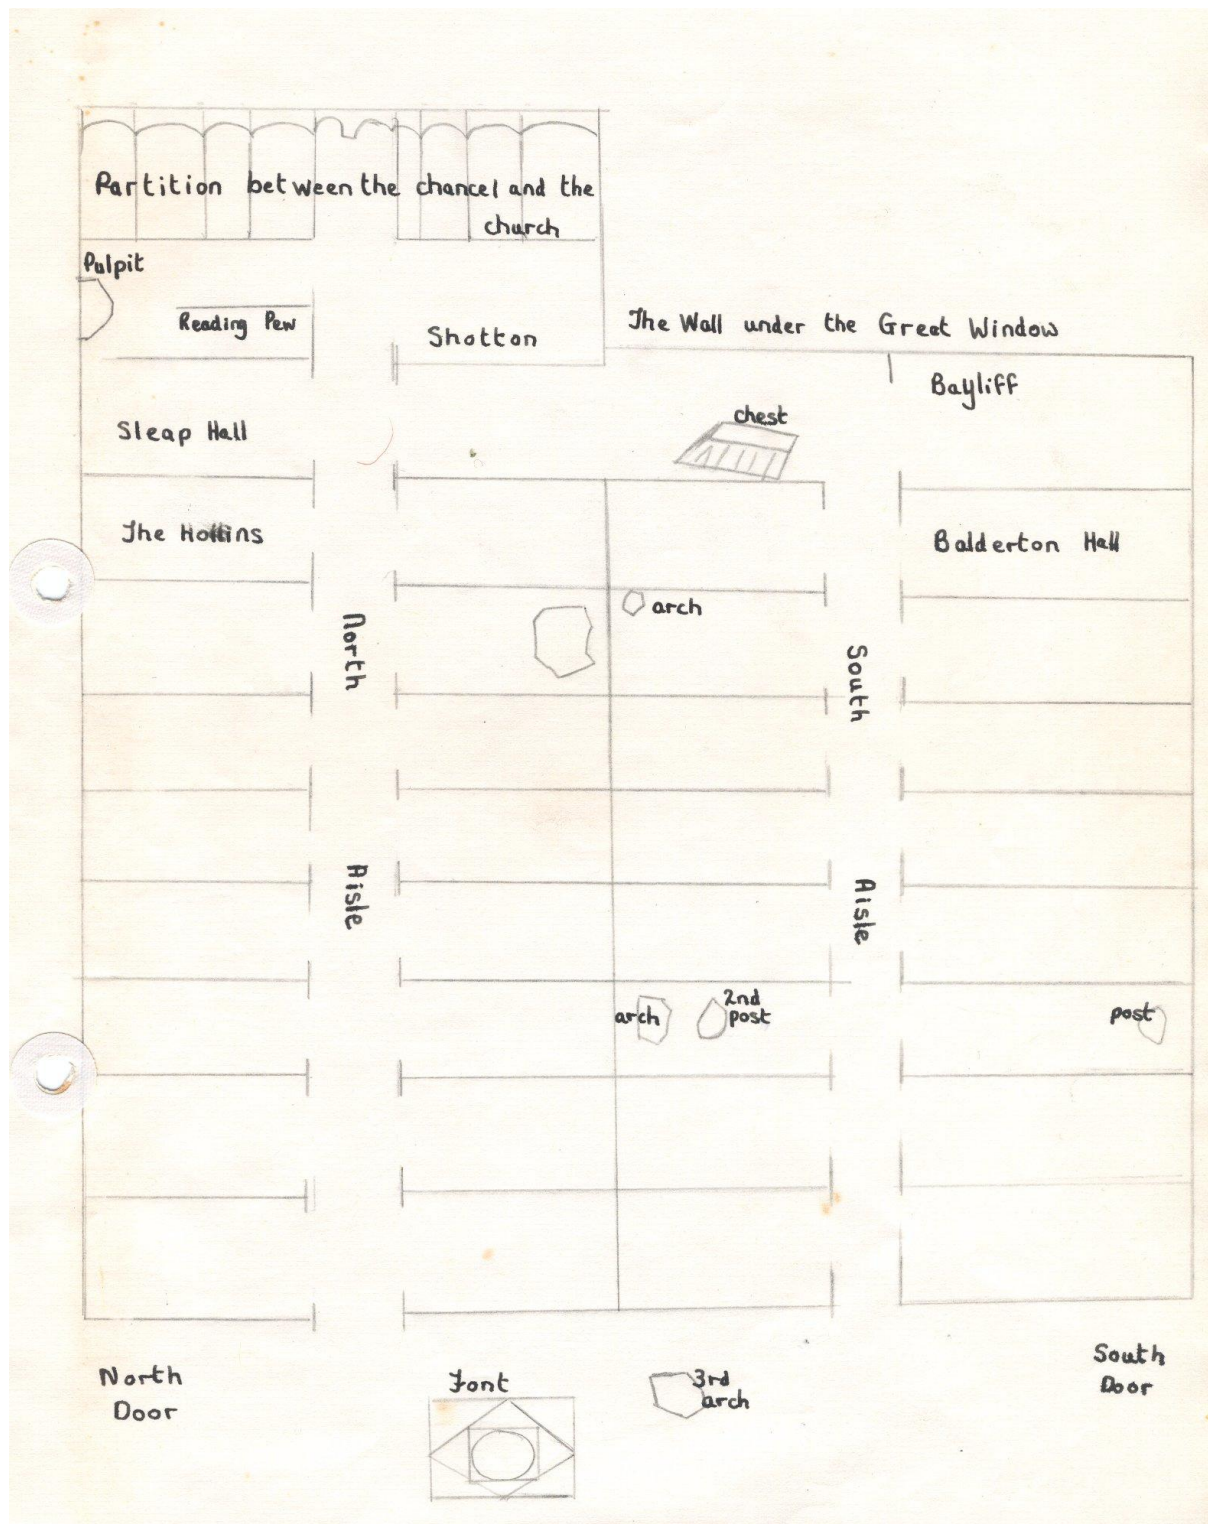 Partition between the chancel and the
church
Pulpit
Reading Pew
Shotton
The Wall under the Great Window
Bayliff
chest
Sleap Hall
The Hollins
Balderton Hall
arch
North
Aisle
South
Aisle
arch
2nd
post
post
North
Door
Font
3rd
arch
South
Door